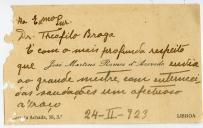 Dr. Theophilo Braga
É com o mais profundo respeito
que José Martins Ramos d'Azevedo envia
ao grande mestre, com
saudações um affectuoso
abraço
24-II-923
LISBOA